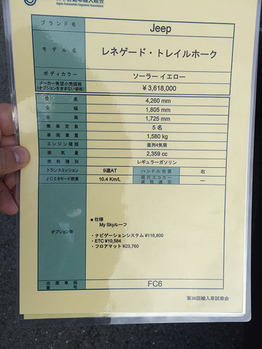 ブランド名 Jeep
モデル名 レネゲード・トレイルホーク
ボディカラー ソーラー イエロー
メーカー希望小売価格 ¥3,618,000
(オプションを含まない価格)
全長 4,260 mm
全幅 1,805 mm
全高 1,725 mm
乗車定員 5 名
車両重量 1,580 kg
エンジン種類 直列4気筒
排気量 2,359 cc
燃料種別 レギュラーガソリン
トランスミッション 9速AT ハンドル位置 右
JC08モード燃費 10.4 Km/L —
オプション等
■ 仕様
My Skyルーフ
・ナビゲーションシステム ¥118,800
・ETC ¥10,584
・フロアマット ¥23,760
FC6
第36回輸入車試乗会